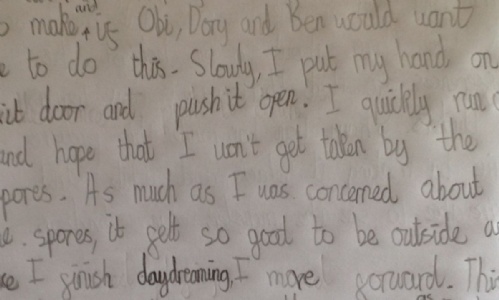 make, is and Obi, Dory and Ben would want
to do this. Slowly, I put my hand on
door and push it open. I quickly run
and hope that I won't get taken by the
pores. As much as I was concerned about
spores, it felt so good to be outside
I finish daydreaming, I move forward. This